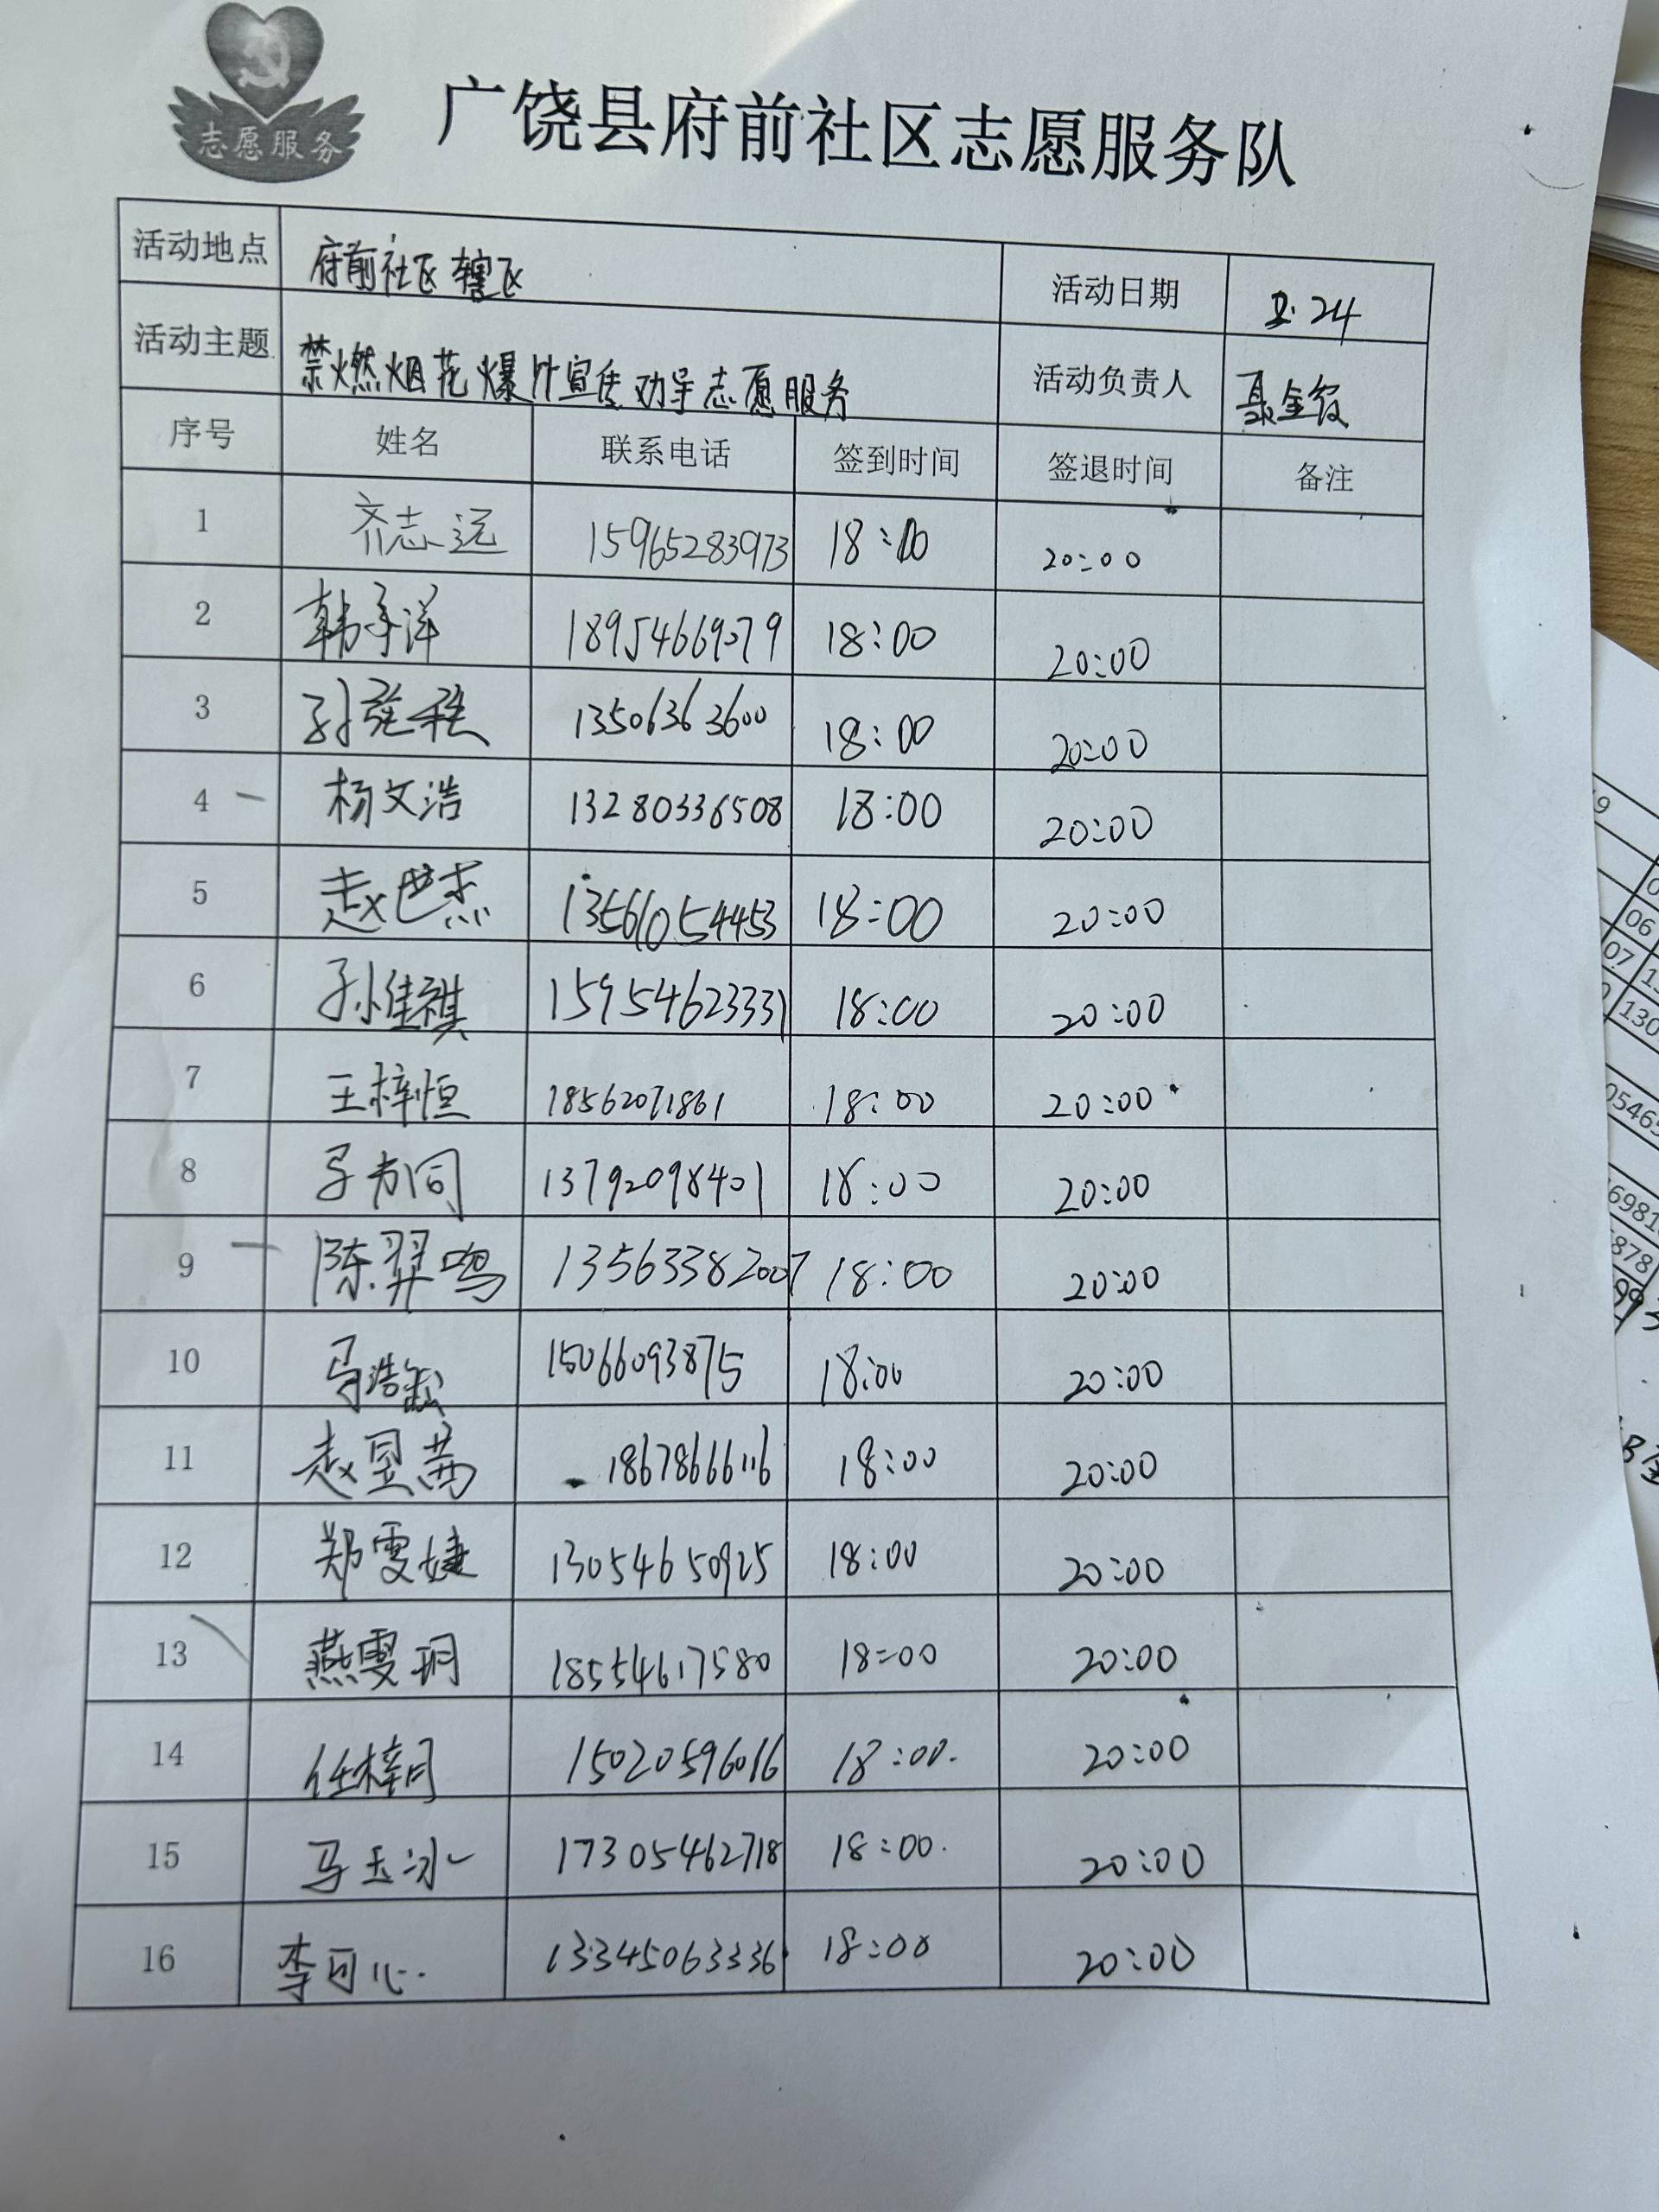 志愿服务
广饶县府前社区志愿服务队
活动地点 府前社区辖区 活动日期 2.24
活动主题 禁燃烟花爆竹宣传劝导志愿服务 活动负责人
序号 姓名 联系电话 签到时间 签退时间 备注
1 齐志远 15965283973 18:00 20:00
2 韩承洋 18954669079 18:00 20:00
3 13506363600 18:00 20:00
4 杨文浩 13280336508 18:00 20:00
5 赵世杰 13561054453 18:00 20:00
6 孙佳祺 15954623331 18:00 20:00
7 王梓恒 18562071861 18:00 20:00
8 13792098401 18:00 20:00
9 陈羿鸣 13563382007 18:00 20:00
10 15066093875 18:00 20:00
11 赵昱茜 18678666116 18:00 20:00
12 郑雯婕 13054650925 18:00 20:00
13 燕雯玥 18554617580 18:00 20:00
14 任梓同 15020596016 18:00 20:00
15 马玉冰 17305462718 18:00 20:00
16 李可心 13345063336 18:00 20:00